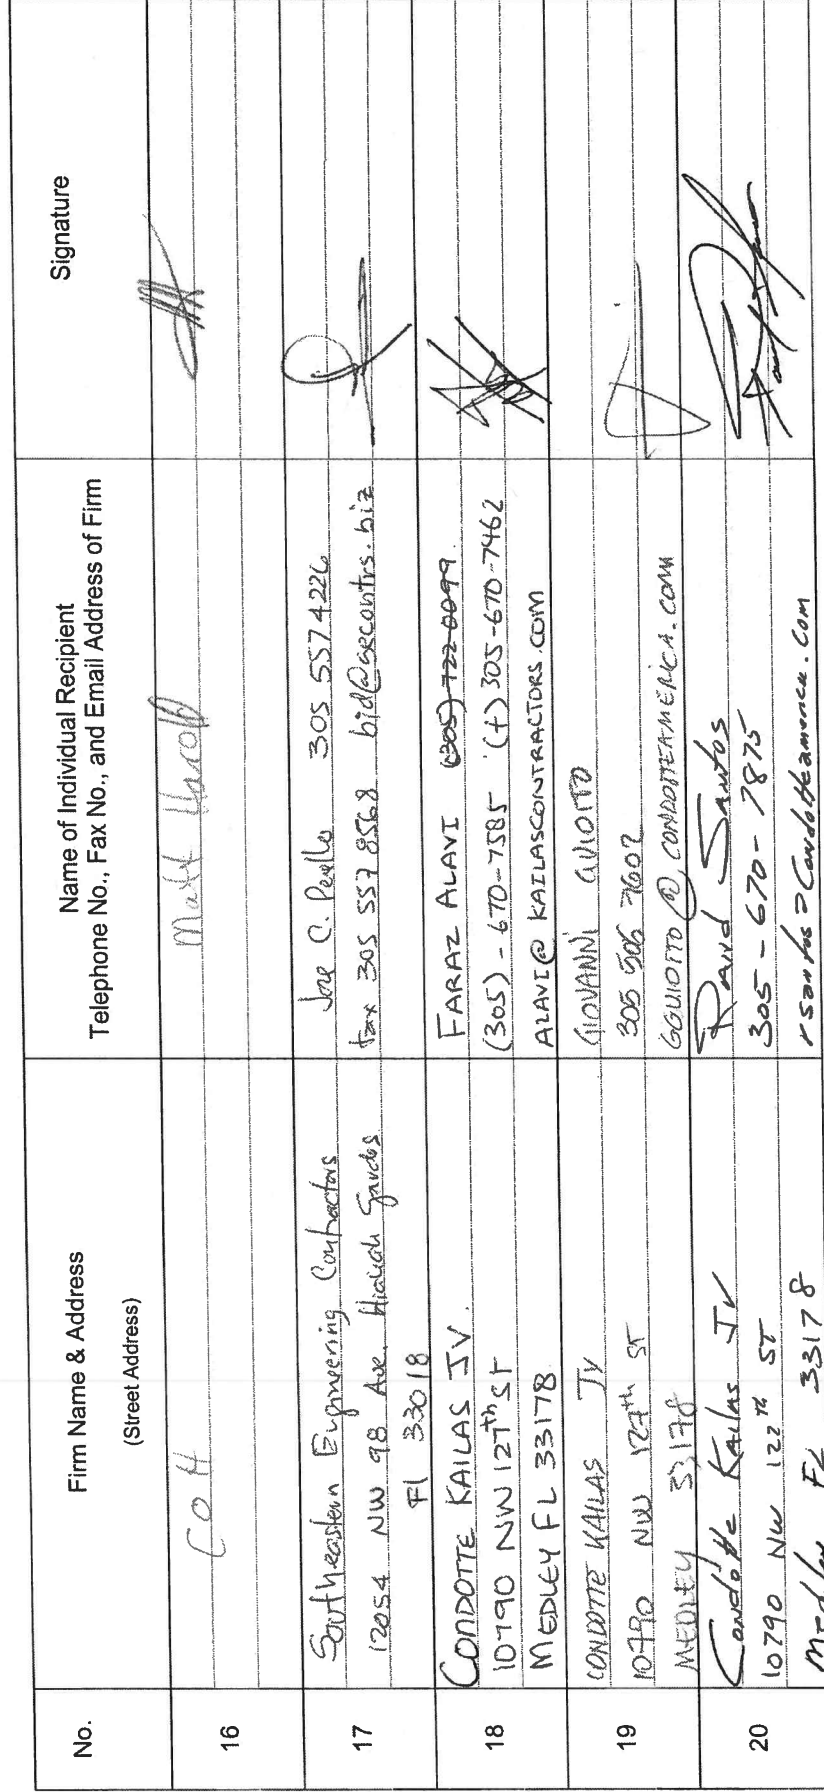 No.
Firm Name & Address
(Street Address)
Name of Individual Recipient
Telephone No., Fax No., and Email Address of Firm
Signature
16
COH
Matt
17
Southeastern Engineering Contractors
12054 NW 98 Ave, Hialeah Gardes
Fl 33018
Jose C.
305 557 4226
fax 305 557 8568 bid@gecontrs.biz
18
CONDOTTE KAILAS JV.
10790 NW 127th ST
MEDLEY FL 33178
FARAZ ALAVI (305) 722-0099
(305) - 670-7585 (t) 305-670-7462
ALAVI@KAILASCONTRACTORS.COM
19
CONDOTTE KAILAS JV
10790 NW 127th ST
MEDLEY 33178
GIOVANNI GUIOTTO
305 506 7602
GGUIOTTO@CONDOTTEAMERICA.COM
20
Condotte Kailas JV
10790 NW 122th ST
Medley FL 33178
Santos
305-670-7875